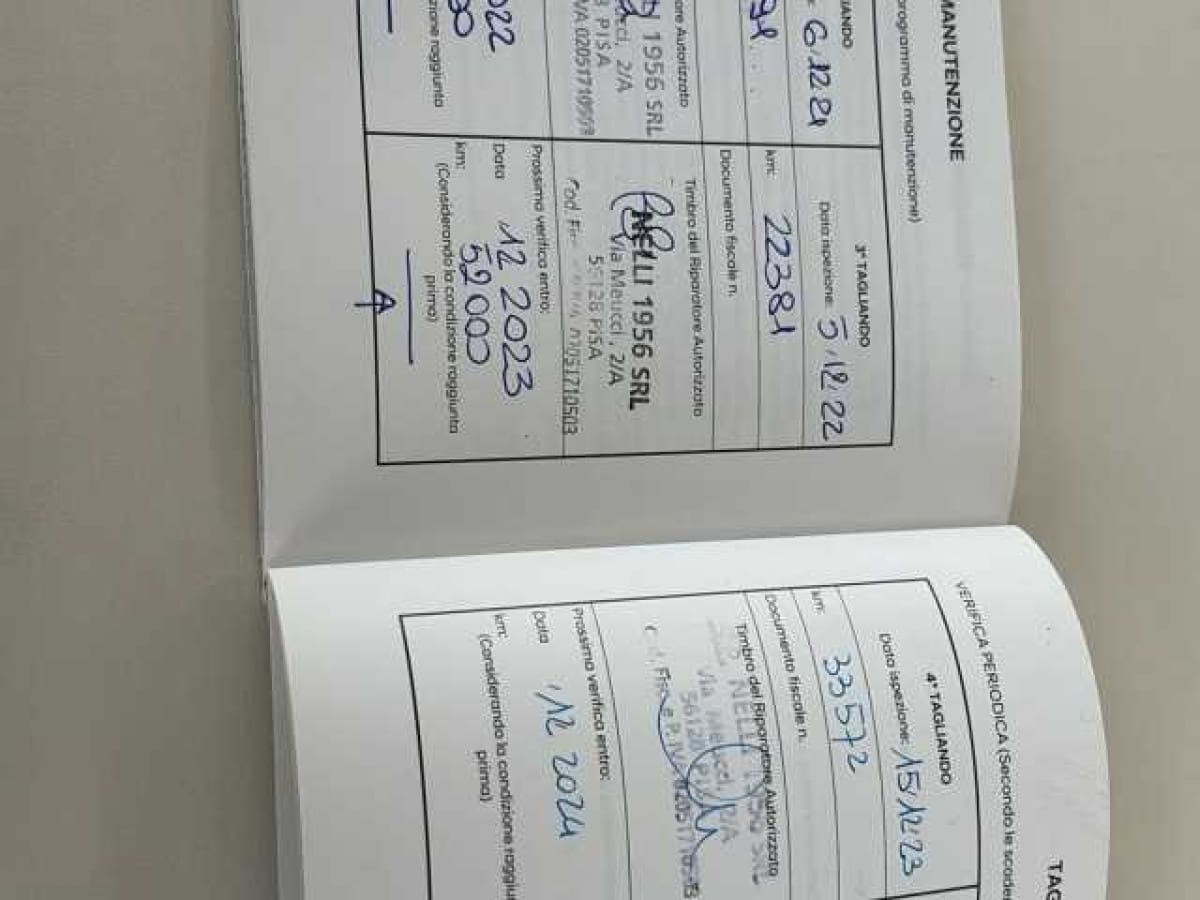 MANUTENZIONE
programma di manutenzione)
6/12 21
Autorizzato
1956 SRL
2/A
PISA
02051710503
raggiunta
3° TAGLIANDO
Data ispezione: 5/12/22
km: 22381
Documento fiscale n.
Timbro del Riparatore Autorizzato
NELLI 1956 SRL
Via Meucci, 2/A
56128 PISA
02051710503
Prossima verifica entro:
Data 12 2023
km: 52000
(Considerando la condizione raggiunta
prima)
A
VERIFICA PERIODICA (Secondo le
4° TAGLIANDO
Data ispezione: 15/12/23
km: 33572
Documento fiscale n.
Timbro del Riparatore Autorizzato
NELLI 1956 SRL
Via Meucci, 2/A
56128 PISA
Prossima verifica entro:
Data 12 2024
km:
(Considerando la condizione
prima)